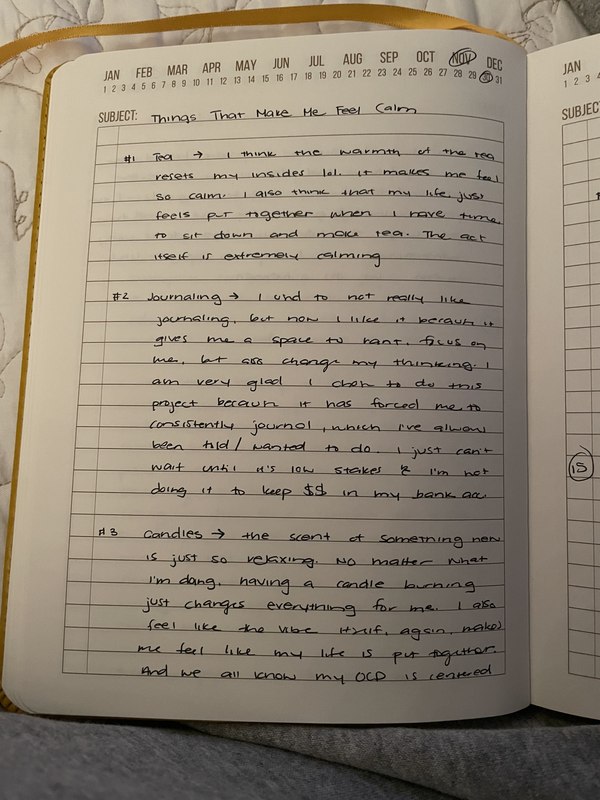 JAN FEB MAR APR MAY JUN JUL AUG SEP OCT NOV DEC
1 2 3 4 5 6 7 8 9 10 11 12 13 14 15 16 17 18 19 20 21 22 23 24 25 26 27 28 29 30 31
SUBJECT: Things That Make Me Feel Calm
#1 Tea → I think the warmth of the tea
resets my insides lol. it makes me feel
so calm. I also think that my life just
feels put together when I have time
to sit down and make tea. The act
itself is extremely calming
#2 Journaling → I used to not really like
journaling, but now I like it because it
gives me a space to rant, focus on
me, but also change my thinking. I
am very glad I chose to do this
project because it has forced me to
consistently journal, which I've always
been told/wanted to do. I just can't
wait until it's low stakes & I'm not
doing it to keep $$ in my bank acc.
#3 Candles → the scent of something new
is just so relaxing. No matter what
I'm doing, having a candle burning
just changes everything for me. I also
feel like the vibe itself, again, makes
me feel like my life is put together.
And we all know my OCD is centered
JAN
1 2 3 4
SUBJECT
15